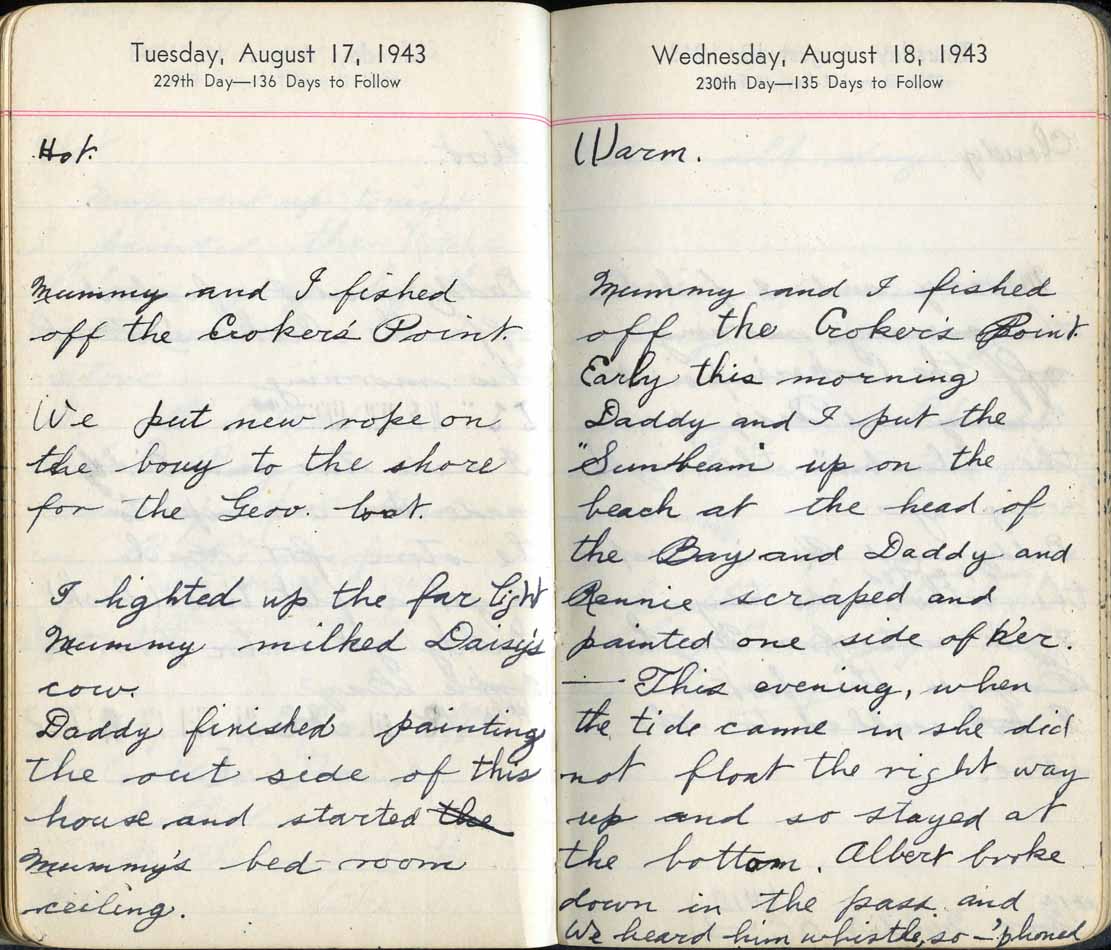 Tuesday, August 17, 1943
229th Day—136 Days to Follow
Hot.
Mummy and I fished
off the Croker's Point.
We put new rope on
the bouy to the shore
for the Gov. boat.
I lighted up the far light
Mummy milked Daisy's
cow.
Daddy finished painting
the out side of this
house and started the
Mummy's bed-room
ceiling.
Wednesday, August 18, 1943
230th Day—135 Days to Follow
Warm.
Mummy and I fished
off the Croker's Point.
Early this morning
Daddy and I put the
"Sunbeam" up on the
beach at the head of
the Bay and Daddy and
Rennie scraped and
painted one side of her.
— This evening, when
the tide came in she did
not float the right way
up and so stayed at
the bottom. Albert broke
down in the pass and
We heard him whistle, so — 'phoned